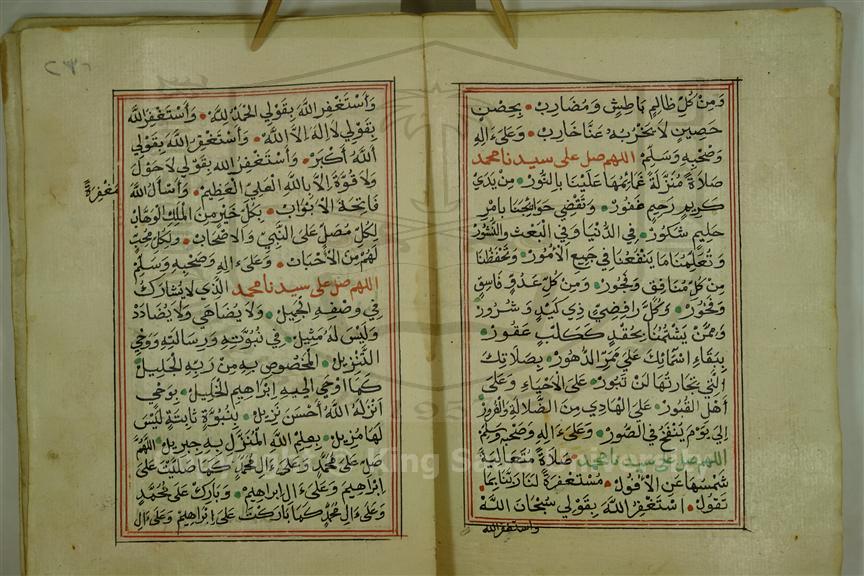 وَمِنْ كُلِّ ظَالِمٍ بَاطِشٍ وَمُضَارِبْ بِحِصْنٍ
حَصِينٍ لَا يَخْرُبُهُ عَنَّا خَارِبْ وَعَلَى ءَالِهِ
وَصَحْبِهِ وَسَلِّمْ اللهم صل على سيدنا محمد
صَلَاةً مُنَزَّلَةً غَمَائِمُهَا عَلَيْنَا بِالنُّورْ مِنْ يَدَيْ
كَرِيمٍ رَحِيمٍ غَفُورْ وَتَقْضِي حَوَائِجَنَا بِأَمْرِ
حَلِيمٍ شَكُورْ فِي الدُّنْيَا وَفِي الْبَعْثِ وَالنُّشُورْ
وَتُعَلِّمُنَا مَا يَنْفَعُنَا فِي جَمِيعِ الْأُمُورْ وَتَحْفَظُنَا
مِنْ كُلِّ مُنَافِقٍ وَفَجُورْ وَمِنْ كُلِّ عَدُوٍّ فَاسِقٍ
وَفَخُورْ وَكُلِّ رَافِضِيٍّ ذِي كَيْدٍ وَشُرُورْ
وَمِمَّنْ يَشْتُمُنَا بِحِقْدٍ كَكَلْبٍ عَقُورْ
بِبَقَاءِ أَسْمَائِكَ عَلَى مَمَرِّ الدُّهُورْ بِصَلَاتِكَ
الَّتِي تِجَارَتُهَا لَنْ تَبُورْ عَلَى الْأَحْيَاءِ وَعَلَى
أَهْلِ الْقُبُورْ عَلَى الْهَادِي مِنَ الضَّلَالَةِ وَالْغُرُورْ
إِلَى يَوْمِ يُنْفَخُ فِي الصُّورْ وَعَلَى ءَالِهِ وَصَحْبِهِ وَسَلِّمْ
اللهم صل على سيدنا محمد صَلَاةً مُتَعَالِيَةً
شَمْسُهَا عَنِ الْأُفُولْ مُسْتَغْفِرَةً لَنَا رَتَّابَهَا
تَقُولْ اسْتَغْفِرُ اللَّهَ بِقَوْلِي سُبْحَانَ اللَّهْ
واستغفر الله
وَأَسْتَغْفِرُ اللَّهَ بِقَوْلِي الْحَمْدُ لِلَّهْ وَأَسْتَغْفِرُ اللَّهَ
بِقَوْلِي لَا إِلَهَ إِلَّا اللَّهْ وَأَسْتَغْفِرُ اللَّهَ بِقَوْلِي
اللَّهُ أَكْبَرْ وَأَسْتَغْفِرُ اللَّهَ بِقَوْلِي لَا حَوْلَ
وَلَا قُوَّةَ إِلَّا بِاللَّهِ الْعَلِيِّ الْعَظِيمْ وَأَسْأَلُ اللَّهَ مَغْفِرَةً
فَاتِحَةَ الْأَبْوَابْ بِكُلِّ خَيْرٍ مِنَ الْمَلِكِ الْوَهَّابْ
لِكُلِّ مُصَلٍّ عَلَى النَّبِيِّ وَالْأَصْحَابْ وَلِكُلِّ مُحِبٍّ
لَهُمْ مِنَ الْأَحْبَابْ وَعَلَى ءَالِهِ وَصَحْبِهِ وَسَلِّمْ
اللهم صل على سيدنا محمد الَّذِي لَا يُشَارَكُ
فِي وَصْفِهِ الْجَمِيلْ وَلَا يُضَاهَى وَلَا يُضَادَدْ
وَلَيْسَ لَهُ مَثِيلْ فِي نُبُوَّتِهِ وَرِسَالَتِهِ وَوَحْيِ
التَّنْزِيلْ الْمَخْصُوصِ بِهِ مِنْ رَبِّهِ الْجَلِيلْ
كَمَا أَوْحَى إِلَيْهِ إِبْرَاهِيمَ الْخَلِيلْ بِوَحْيٍ
أَنْزَلَهُ اللَّهُ أَحْسَنَ نَزِيلْ بِنُبُوَّةٍ ثَابِتَةٍ لَيْسَ
لَهَا مُزِيلْ بِعِلْمِ اللَّهِ الْمُنَزَّلِ بِهِ جِبْرِيلْ اللَّهُمَّ
صَلِّ عَلَى مُحَمَّدٍ وَعَلَى ءَالِ مُحَمَّدٍ كَمَا صَلَّيْتَ عَلَى
إِبْرَاهِيمَ وَعَلَى ءَالِ إِبْرَاهِيمْ وَبَارِكْ عَلَى مُحَمَّدٍ
وَعَلَى ءَالِ مُحَمَّدٍ كَمَا بَارَكْتَ عَلَى إِبْرَاهِيمَ وَعَلَى ءَالِ